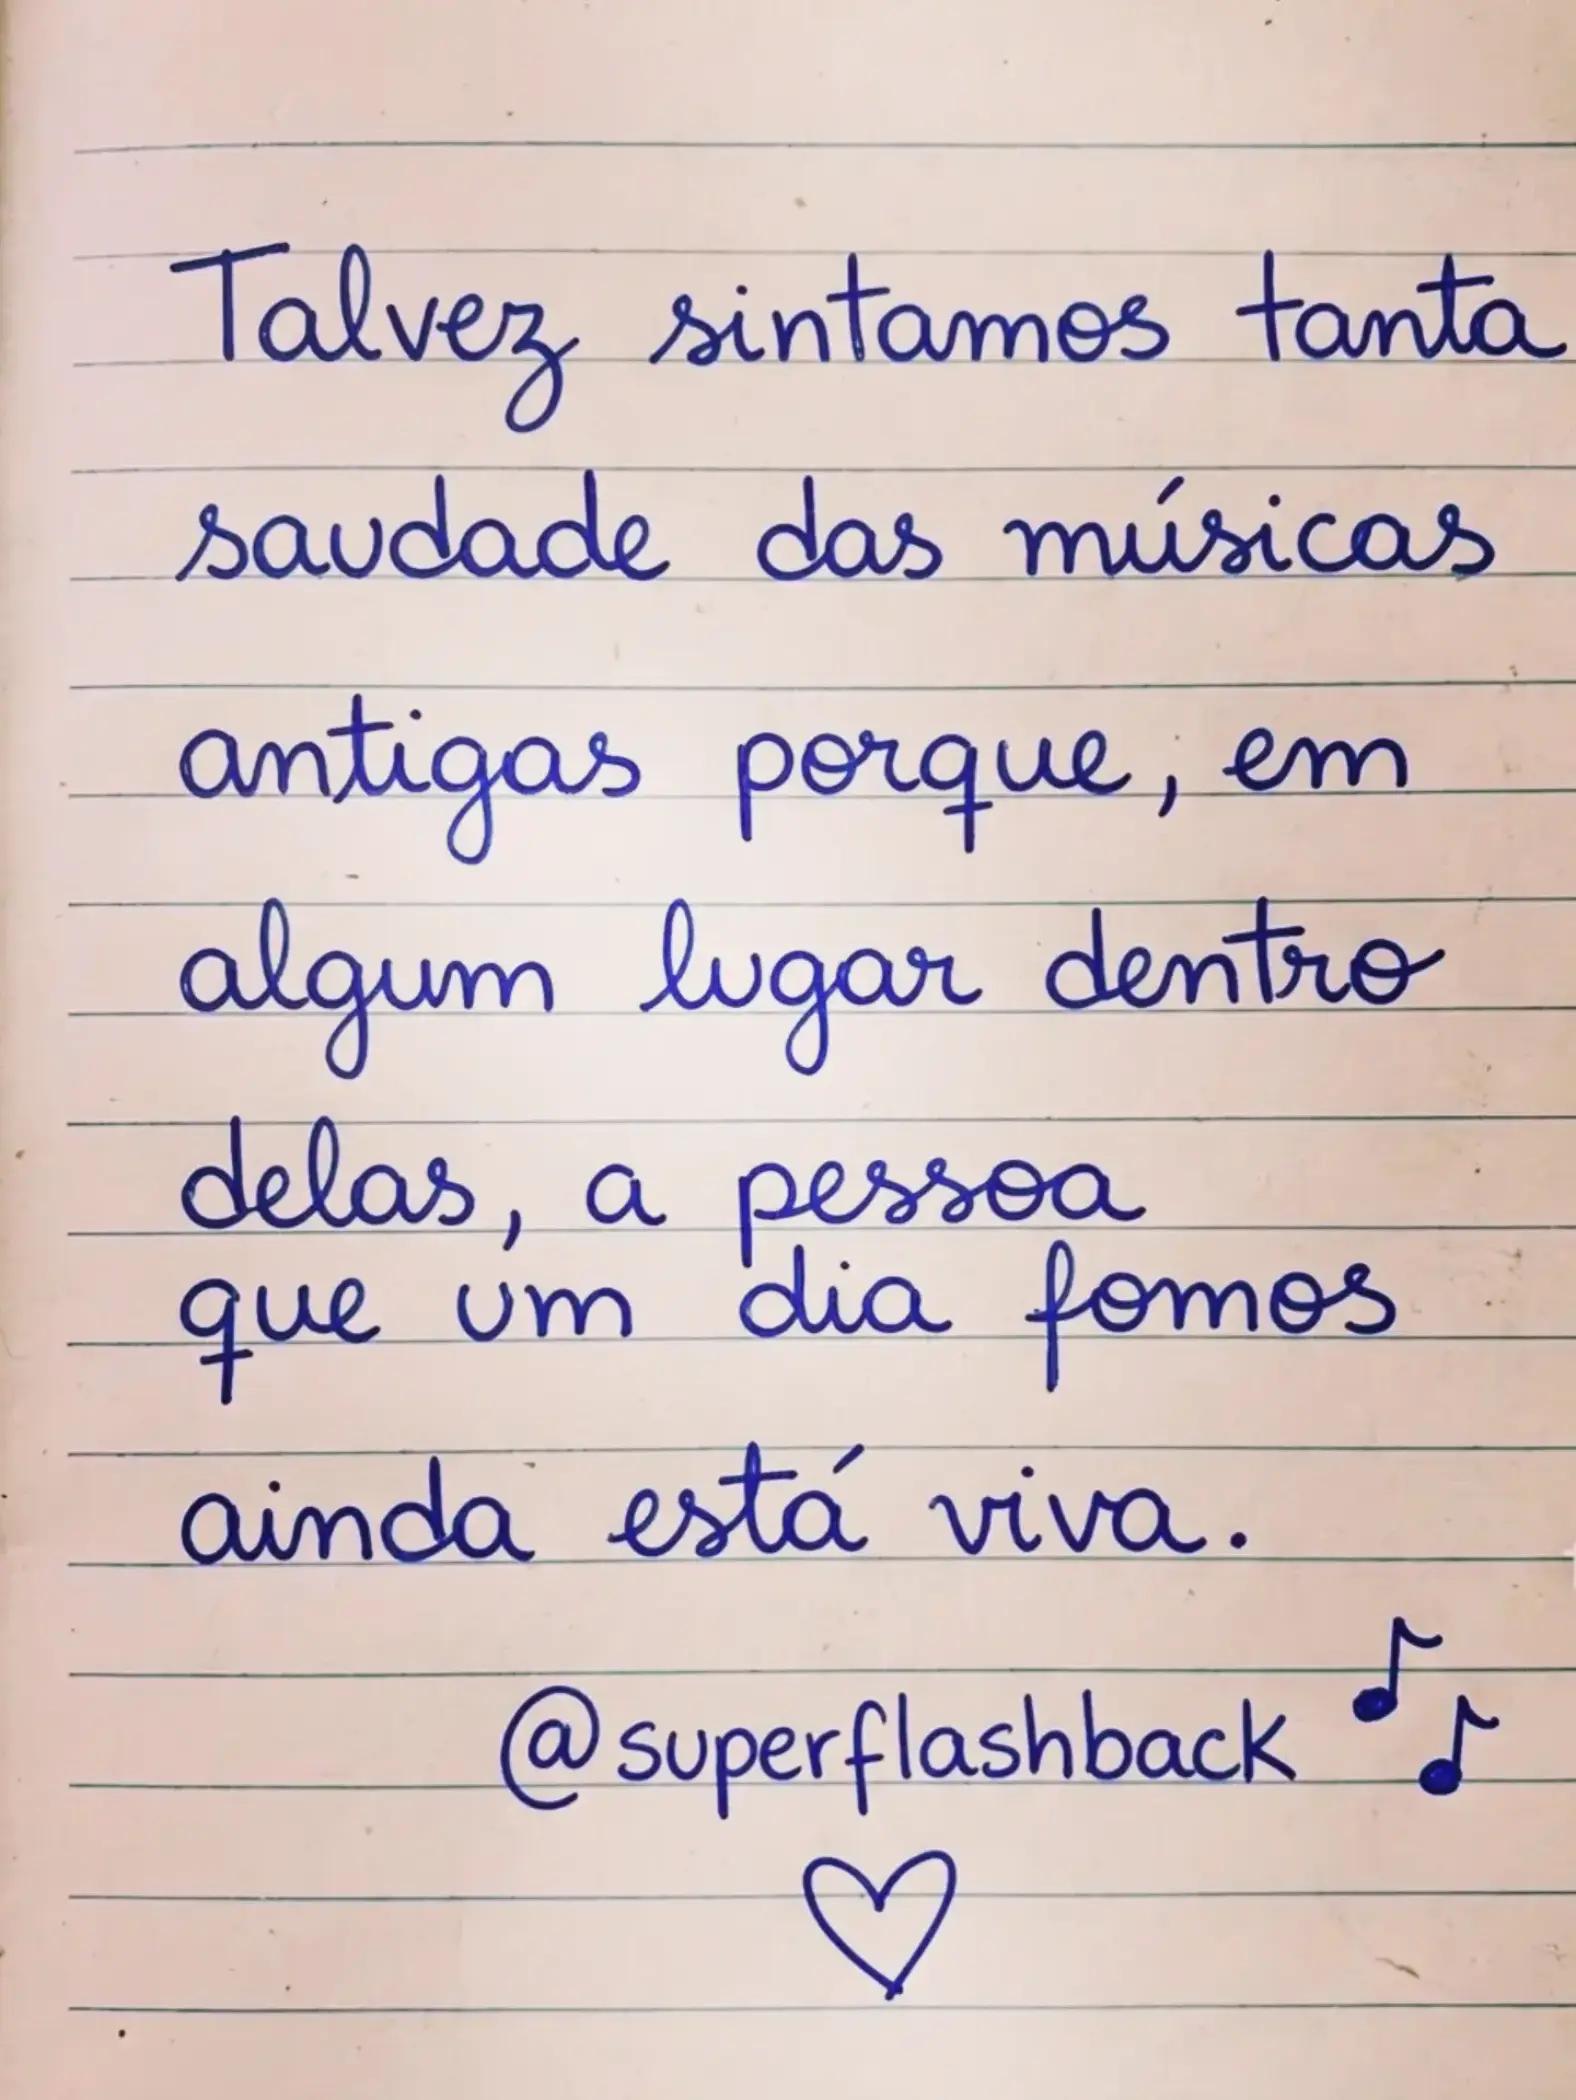 Talvez sintamos tanta
saudade das músicas
antigas porque, em
algum lugar dentro
delas, a pessoa
que um dia fomos
ainda está viva.
@superflashback